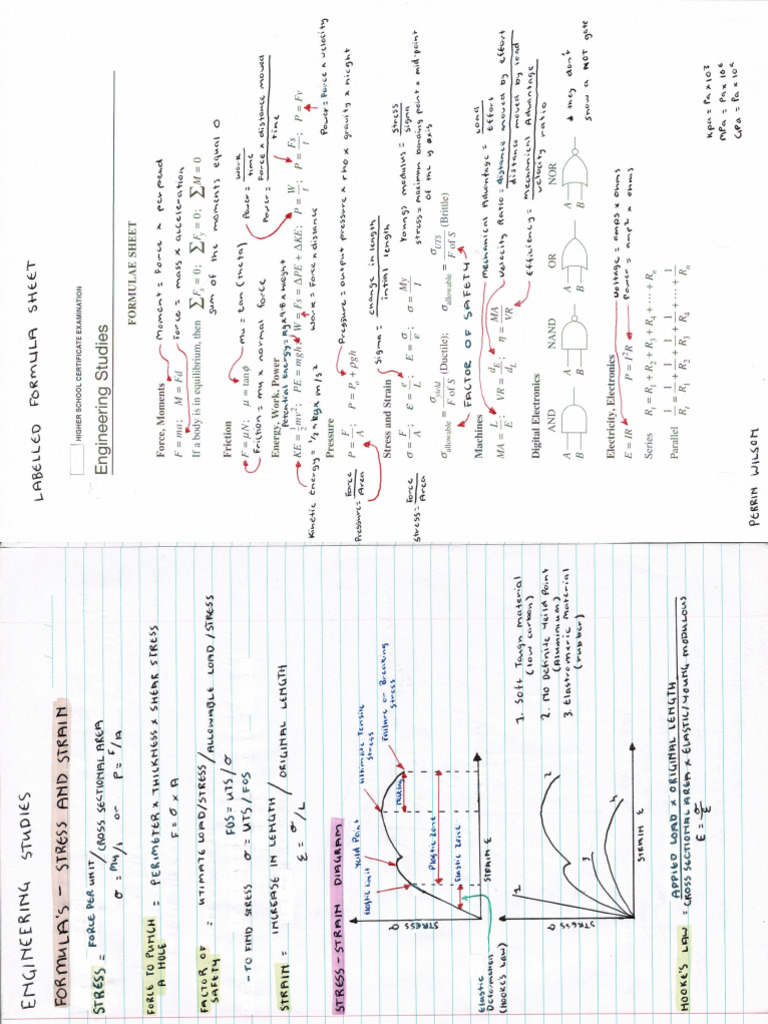 ENGINEERING STUDIES
FORMULA'S - STRESS AND STRAIN
STRESS = FORCE PER UNIT / CROSS SECTIONAL AREA
σ = My/I or P = F/A
FORCE TO PUNCH A HOLE = PERIMETER × THICKNESS × SHEAR STRESS
F = σ × A
FACTOR OF SAFETY = UTIMATE LOAD/STRESS / ALLOWABLE LOAD/STRESS
FOS = UTS/σ
- TO FIND STRESS σ = UTS/FOS
STRAIN = INCREASE IN LENGTH / ORIGINAL LENGTH
ε = σ/L
STRESS - STRAIN DIAGRAM
STRESS σ
Elastic Limit
Yeild Point
Ultimate Tensile Stress
Failure or Breaking Stress
Necking
Plastic Zone
Elastic Zone
STRAIN ε
Elastic Deformation (HOOKE'S LAW)
STRESS σ
STRAIN ε
1. Soft Tough Material
(low carbon)
2. No Definite Yeild Point
(Aluminium)
3. Elastromeric Material
(rubber)
HOOKE'S LAW = APPLIED LOAD × ORIGINAL LENGTH
CROSS SECTIONAL AREA × ELASTIC/YOUNG MODULOUS
ε = σ/E
LABELLED FORMULA SHEET
HIGHER SCHOOL CERTIFICATE EXAMINATION
Engineering Studies
FORMULAE SHEET
Force, Moments
Moment = Force × perpend
F = ma; M = Fd
Force = mass × acceleration
If a body is in equilibrium, then ∑Fx = 0; ∑Fy = 0; ∑M = 0
sum of the moments equal 0
Friction
mu = tan (theta)
F = μN; μ = tanφ
Friction = mu × normal force
Power = work / time
Power = Force × distance moved / time
Energy, Work, Power
Potential energy = kg × 9.8 × height
KE = ½mv²; PE = mgh; W = Fs = ΔPE + ΔKE; P = W/t; P = Fs/t; P = Fv
Kinetic energy = 1/2 × kg × m/s²
Work = Force × distance
Power = Force × velocity
Pressure
Pressure = Force / Area
P = F/A; P = Po + ρgh
Pressure = output pressure × rho × gravity × hieght
Stress and Strain
Sigma = change in length / intial length
Youngs modulus = stress / sigma
σ = F/A; ε = e/L; E = σ/ε; σ = My/I
Stress = Force / Area
stress = maximum bending point × mid-point of the y axis
σallowable = σyield / F of S (Ductile); σallowable = σUTS / F of S (Brittle)
FACTOR OF SAFETY
Machines
mechanical Advantage = LOAD / Effort
MA = L/E; VR = dE/dL; η = MA/VR
velocity Ratio = distance moved by effort / distance moved by load
efficiency = Mechanical Advantage / velocity ratio
Digital Electronics
AND NAND OR NOR
A A A A
B B B B
* they don't show a NOT gate
Electricity, Electronics
Voltage = amps × ohms
E = IR P = I²R
Power = amp² × ohms
Series Rt = R1 + R2 + R3 + R4 + ⋯ + Rn
Parallel 1/Rt = 1/R1 + 1/R2 + 1/R3 + 1/R4 + ⋯ + 1/Rn
Kpa = Pa × 10³
MPa = Pa × 10⁶
PERRIN WILSON